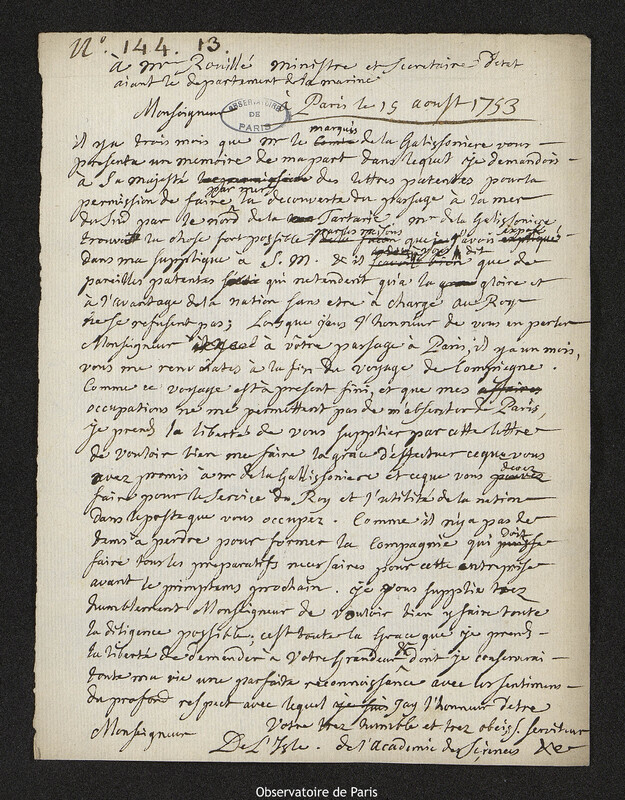 N.º 144. 13.
à Mr Rouillé Ministre et Secretaire d'Etat
aiant le departement de la marine
Monseigneur à Paris le 15 aoust 1753
OBSERVATOIRE DE PARIS
marquis
il y a trois mois que Mr le Comte de la Galissoniere vous
presenta un memoire de ma part dans lequel je demandois
à Sa Majesté la permission des lettres patentes pour la
par mer
permission de faire la decouverte du passage à la mer
du Sud par le nord de la Tartarie. Mr de la Galissoniere
trouva la chose fort possible par les raisons que j'avois exposé
dans ma supplique à S. M. & il vous dit que de
pareilles patentes qui ne tendent qu'à la gloire et
à l'avantage de la nation sans etre à charge au Roy
ne se refusent pas; Lorsque j'eus l'honneur de vous en parler
Monseigneur à vôtre passage à Paris, il y a un mois,
vous me renvoiates à la fin du voyage de Compiegne.
Comme ce voyage est à present fini, et que mes affaires
occupations ne me permettent pas de m'absenter de Paris,
je prends la liberté de vous supplier par cette lettre
de vouloir bien me faire la grace d'effectuer ce que vous
avez promis à Mr de la Galissoniere et ce que vous pouvez
devez
faire pour le Service du Roy et l'utilité de la nation
dans le poste que vous occupez. Comme il n'y a pas de
tems à perdre pour former la Compagnie qui puisse
doit
faire tous les preparatifs necessaires pour cette entreprise
avant le printems prochain. je vous supplie trez
humblement Monseigneur de vouloir bien y faire toute
la diligence possible, c'est toute la Grace que je prends
la liberté de demander à Votre Grandeur & dont je conserverai
toute ma vie une parfaite reconnoissance avec les sentimens
du profond respect avec lequel je suis j'ay l'honneur d'etre
Monseigneur Votre trez humble et trez obeiss. serviteur
De L'Isle. de l'Academie des Sciences &c
Observatoire de Paris